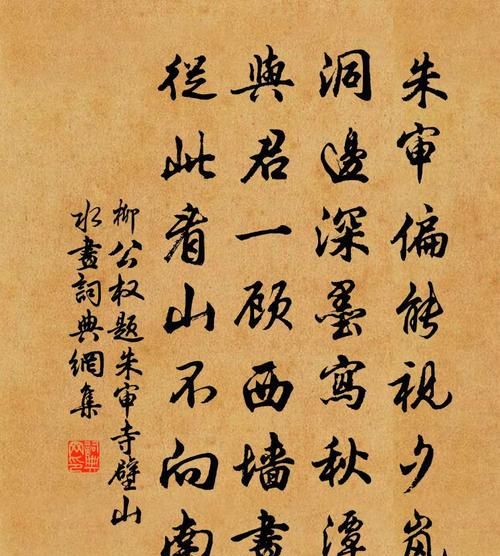 朱审偏能视夕岚
洞邊深墨寫秋潭
與君一顾西墙畫
從此看山不向南
柳公权题朱审寺壁山
水畫詞典網集